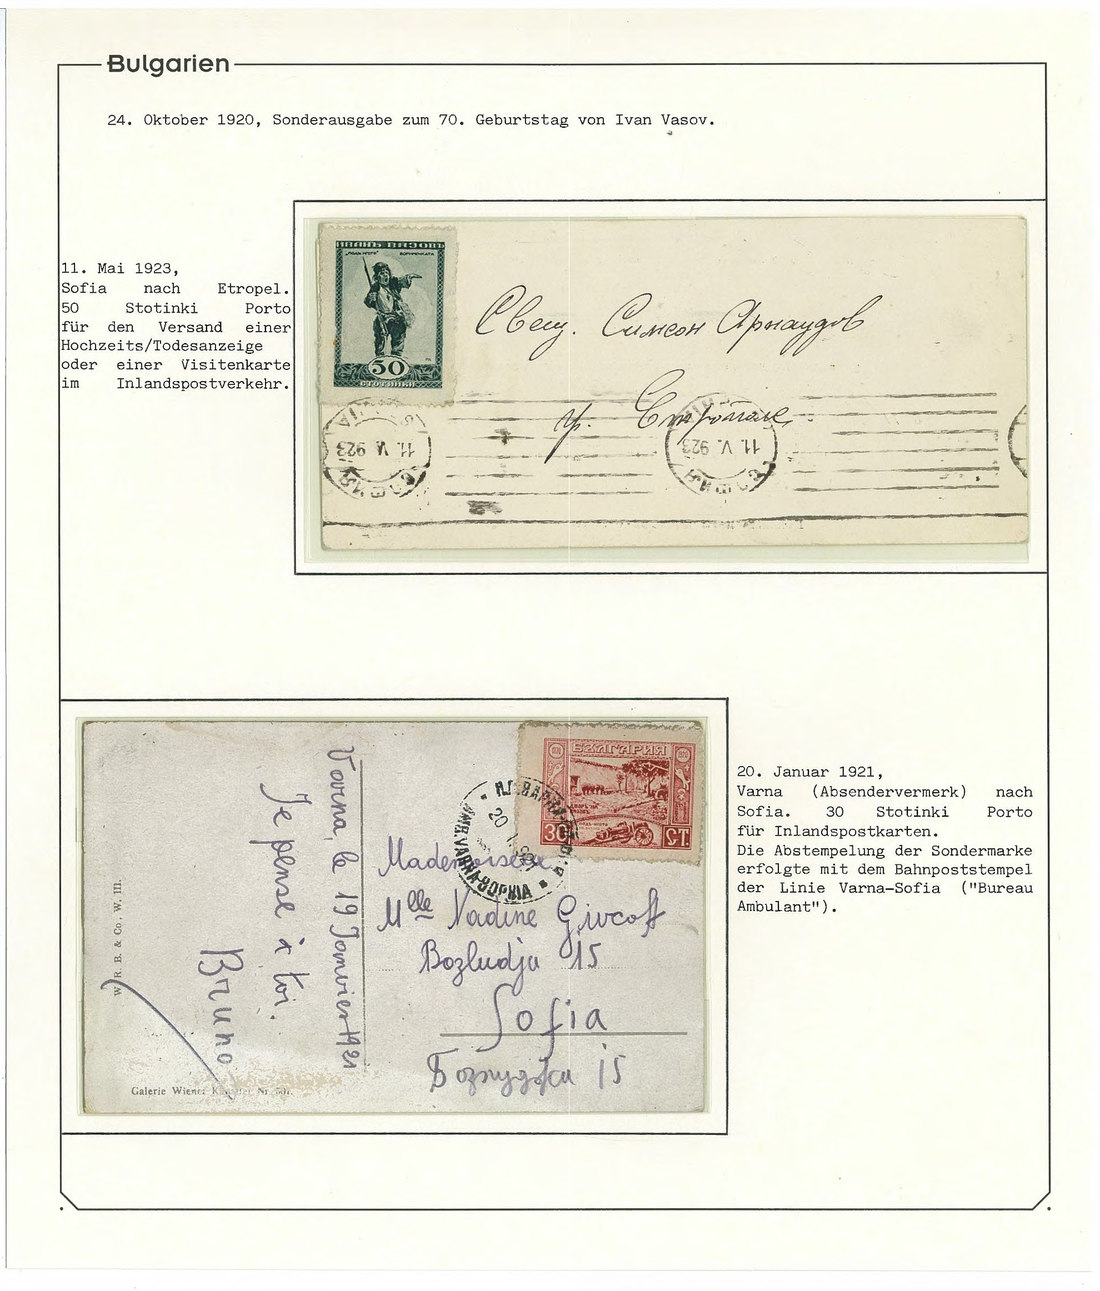 Bulgarien
24. Oktober 1920, Sonderausgabe zum 70. Geburtstag von Ivan Vasov.
11. Mai 1923,
Sofia nach Etropel.
50 Stotinki Porto
für den Versand einer
Hochzeits/Todesanzeige
oder einer Visitenkarte
im Inlandspostverkehr.
ИВАНЪ ВАЗОВЪ
50
СТОТИНКИ
Свещ. Симеон Арнаудов
гр. Етрополе
11. V. 923
11. V. 923
СОФИЯ
20. Januar 1921,
Varna (Absendervermerk) nach
Sofia. 30 Stotinki Porto
für Inlandspostkarten.
Die Abstempelung der Sondermarke
erfolgte mit dem Bahnpoststempel
der Linie Varna-Sofia ("Bureau
Ambulant").
БЪЛГАРИЯ
1920
30
СТ
20
AMB. VARNA-SOPHIA
Varna, le 19 Janvier 1921
Je pense à toi.
Bruno
Mademoiselle
Mlle Nadine Givcoff
Bozludja 15
Sofia
Бозлуджа 15
W. R. B. & Co., W. III.
Galerie Wiener